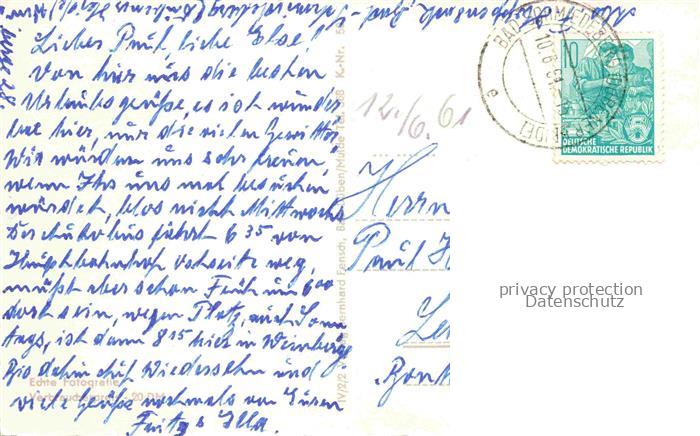 Lieber Paul, liebe Else!
Von hier uns die besten
Urlaubsgrüße, es ist wunder
bar hier, nur die vielen Gewitter,
Wir würden uns sehr freuen,
wenn Ihr uns mal besuchen
würdet, blos nicht Mittwochs
fährt 6 35 von
Hauptbahnhof Ostseite weg,
müßt aber schon Früh um 6 00
dort sein, wegen Platz, auch Sonn
tags, ist dann 8 15 hier in
Bis dahin auf Wiedersehn und
viele Grüße nochmals von Euren
Fritz & Illa.
Echte Fotografie
20 DM
IV/2/2
Bernhard Fensch, Bad
ben/Mulde
K-Nr.
12./6. 61
Herrn
Paul H
10
5
DEUTSCHE
DEMOKRATISCHE REPUBLIK
privacy protection
Datenschutz